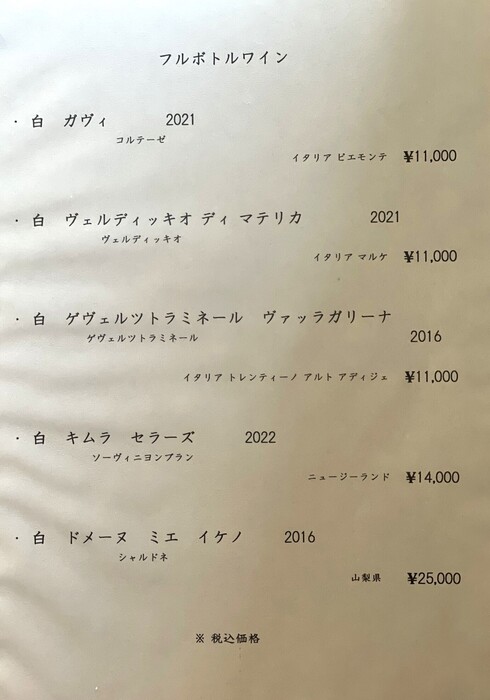 フルボトルワイン
・ 白 ガヴィ 2021
コルテーゼ
イタリア ピエモンテ ¥11,000
・ 白 ヴェルディッキオ ディ マテリカ 2021
ヴェルディッキオ
イタリア マルケ ¥11,000
・ 白 ゲヴェルツトラミネール ヴァッラガリーナ
ゲヴェルツトラミネール 2016
イタリア トレンティーノ アルト アディジェ ¥11,000
・ 白 キムラ セラーズ 2022
ソーヴィニヨンブラン
ニュージーランド ¥14,000
・ 白 ドメーヌ ミエ イケノ 2016
シャルドネ
山梨県 ¥25,000
※ 税込価格